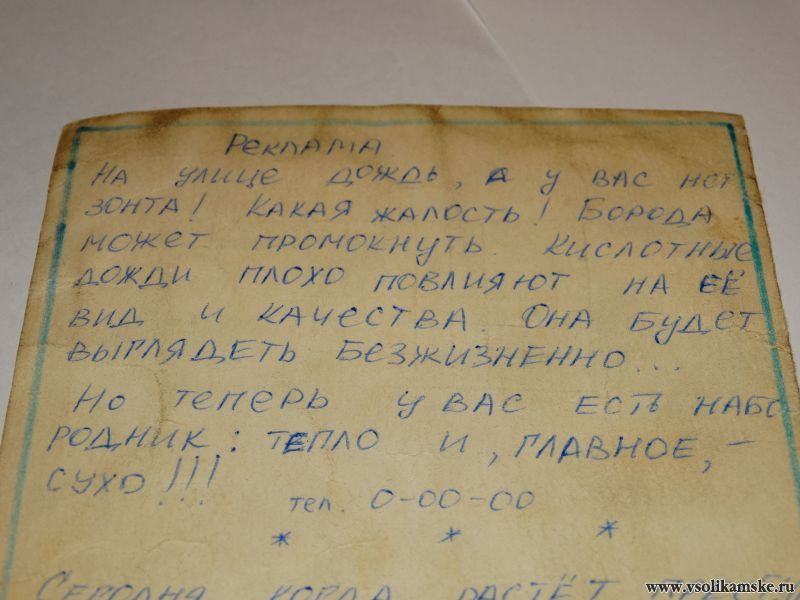 Реклама
На улице дождь, а у вас нет
зонта! Какая жалость! Борода
может промокнуть. Кислотные
дожди плохо повлияют на её
вид и качества. Она будет
выглядеть безжизненно...
Но теперь у вас есть набо
родник: тепло и, главное, –
сухо!!!
тел. 0-00-00
* * *
Сегодня, когда растёт
www.vsolikamske.ru